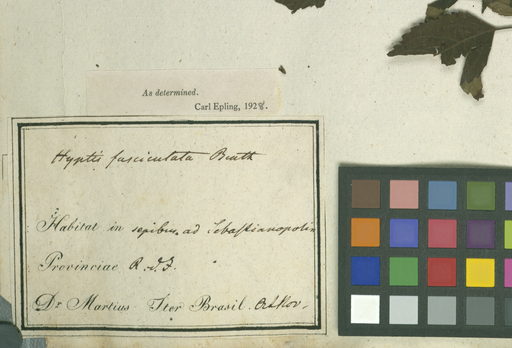 As determined.
Carl Epling, 1928.
Hyptis fasciculata Benth
Habitat in sepibus ad Sebastianopolin
Provinciae R. d. J.
Dr Martius Iter Brasil. Oct. Nov.